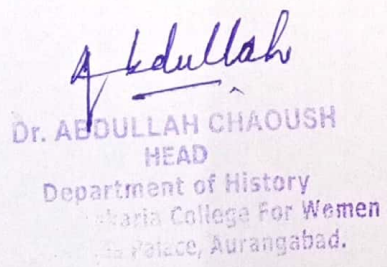 Abdullah
Dr. ABDULLAH CHAOUSH
HEAD
Department of History
College For Women
Palace, Aurangabad.